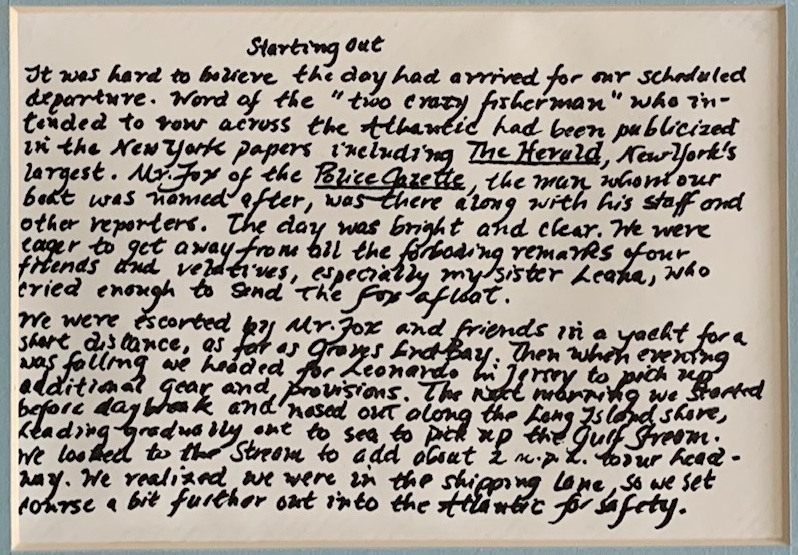 Starting Out
It was hard to believe the day had arrived for our scheduled
departure. Word of the "two crazy fisherman" who in-
tended to row across the Atlantic had been publicized
in the New York papers including The Herald, New York's
largest. Mr. Fox of the Police Gazette, the man whom our
boat was named after, was there along with his staff and
other reporters. The day was bright and clear. We were
eager to get away from all the forboding remarks of our
friends and relatives, especially my sister Leana, who
cried enough to send The Fox afloat.
We were escorted by Mr. Fox and friends in a yacht for a
short distance, as far as Graves End Bay. Then when evening
was falling we headed for Leonardo in Jersey to pick up
additional gear and provisions. The next morning we started
before daybreak and nosed out along the Long Island shore,
heading gradually out to sea to pick up the Gulf Stream.
We looked to the Stream to add about 2 m.p.h. to our head-
way. We realized we were in the shipping lane, so we set
course a bit further out into the Atlantic for safety.